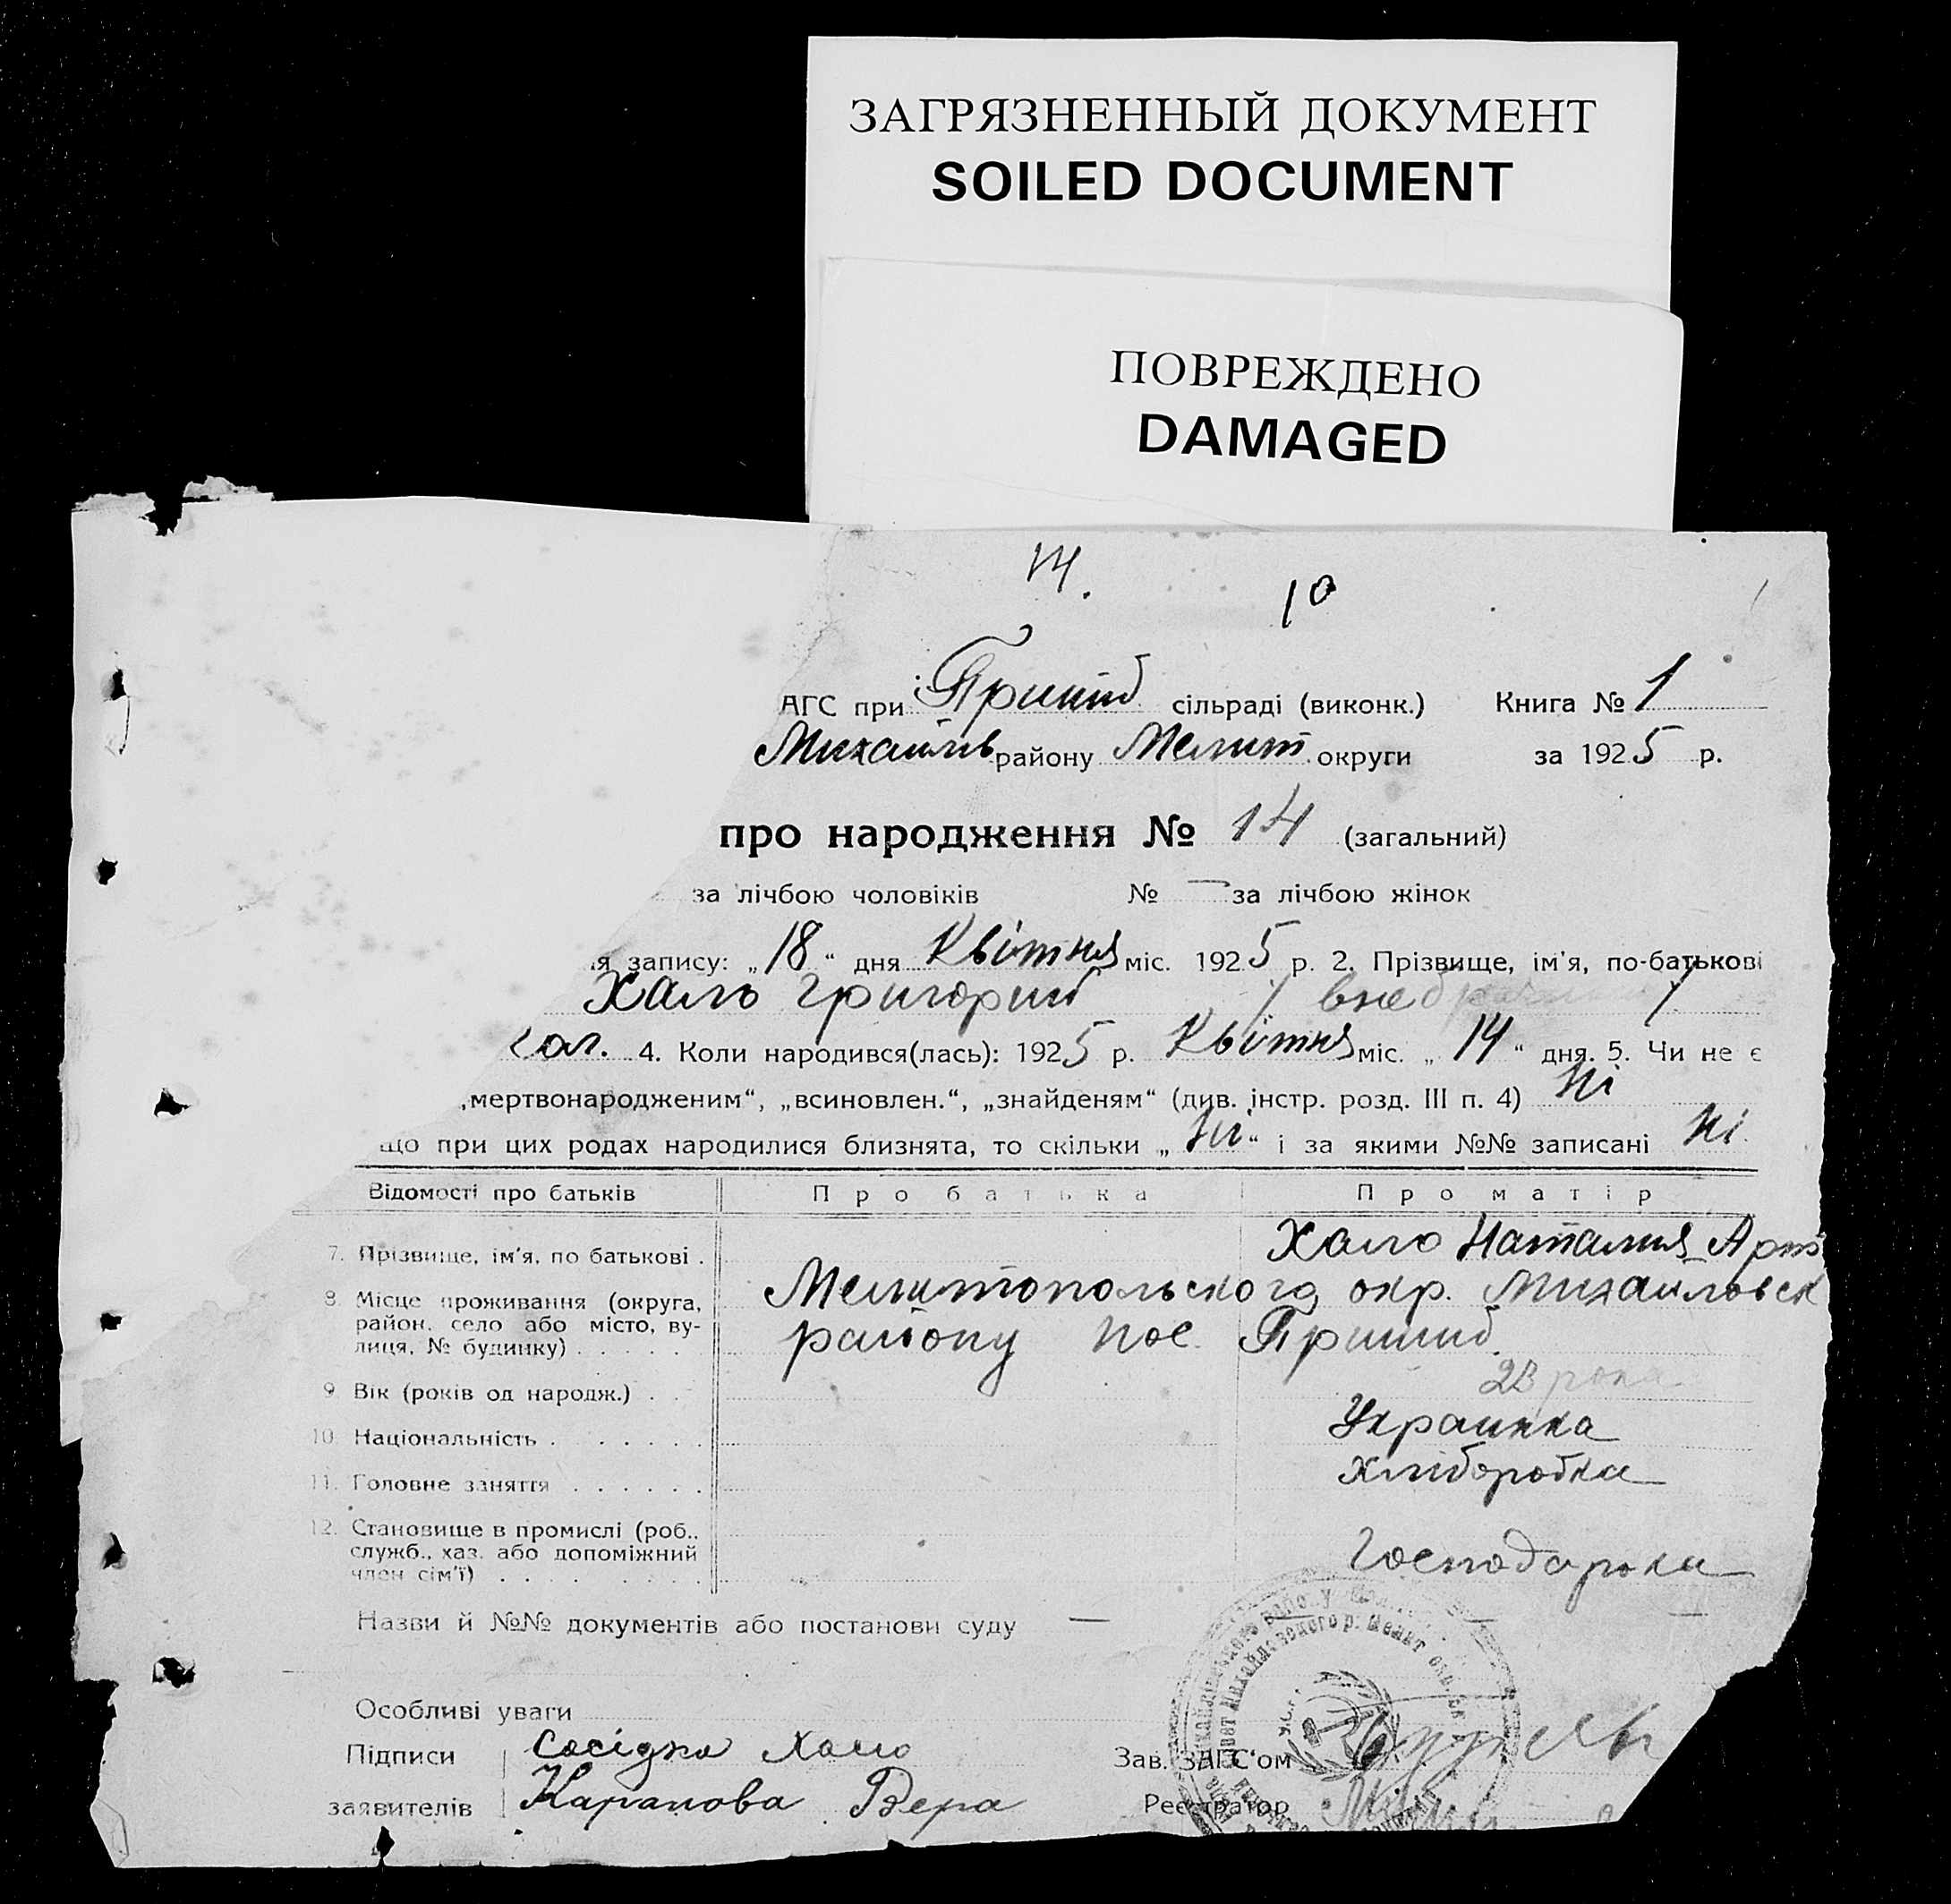 ЗАГРЯЗНЕННЫЙ ДОКУМЕНТ
SOILED DOCUMENT
ПОВРЕЖДЕНО
DAMAGED
14.
10
АГС при Пришиб сільраді (виконк.) Книга № 1
Михайлів району Мелит. округи за 1925 р.
про народження № 14 (загальний)
за лічбою чоловіків № — за лічбою жінок
я запису: „18“ дня Квітня міс. 1925 р. 2. Прізвище, ім'я, по-батькові
Халь Григорий / внебрачний /
4. Коли народився(лась): 1925 р. Квітня міс. „14“ дня. 5. Чи не є
„мертвонародженим“, „всиновлен.“, „знайденям“ (див. інстр. розд. III п. 4) Ні
що при цих родах народилися близнята, то скільки „Ні“ і за якими №№ записані Ні.
Відомості про батьків Про батька Про матір
7. Прізвище, ім'я, по батькові . Хало Наталия Арт
8. Місце проживання (округа, Мелитопольского окр. Михаиловск
район, село або місто, ву-
лиця, № будинку) . . . . . району пос. Пришиб.
9. Вік (років од народж.) . . 23 роки
10. Національність . . . . . Украинка
11. Головне заняття . . . . . . Хліборобка
12. Становище в промислі (роб.,
служб., хаз. або допоміжний Господарка
член сім'ї) . . . . . . . .
Назви й №№ документів або постанови суду —
Особливі уваги
Підписи Сосідка Хало Зав. ЗАГС'ом
заявителів Карапова Вера Реєстратор